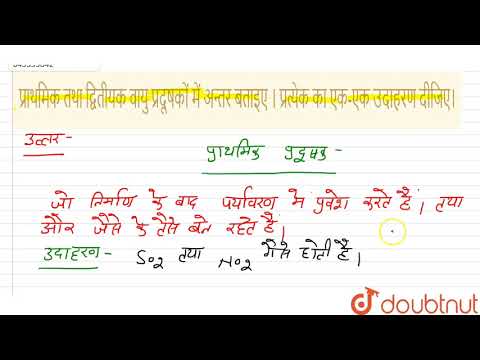 प्राथमिक तथा द्वितीयक वायु प्रदूषकों में अन्तर बताइए। प्रत्येक का एक-एक उदाहरण दीजिए।
उत्तर-
प्राथमिक प्रदूषक -
जो निर्माण के बाद पर्यावरण में प्रवेश करते हैं। तथा
और जैसे के तैसे बने रहते हैं।
उदाहरण- SO2 तथा NO2 गैसे होती है।
doubtnut